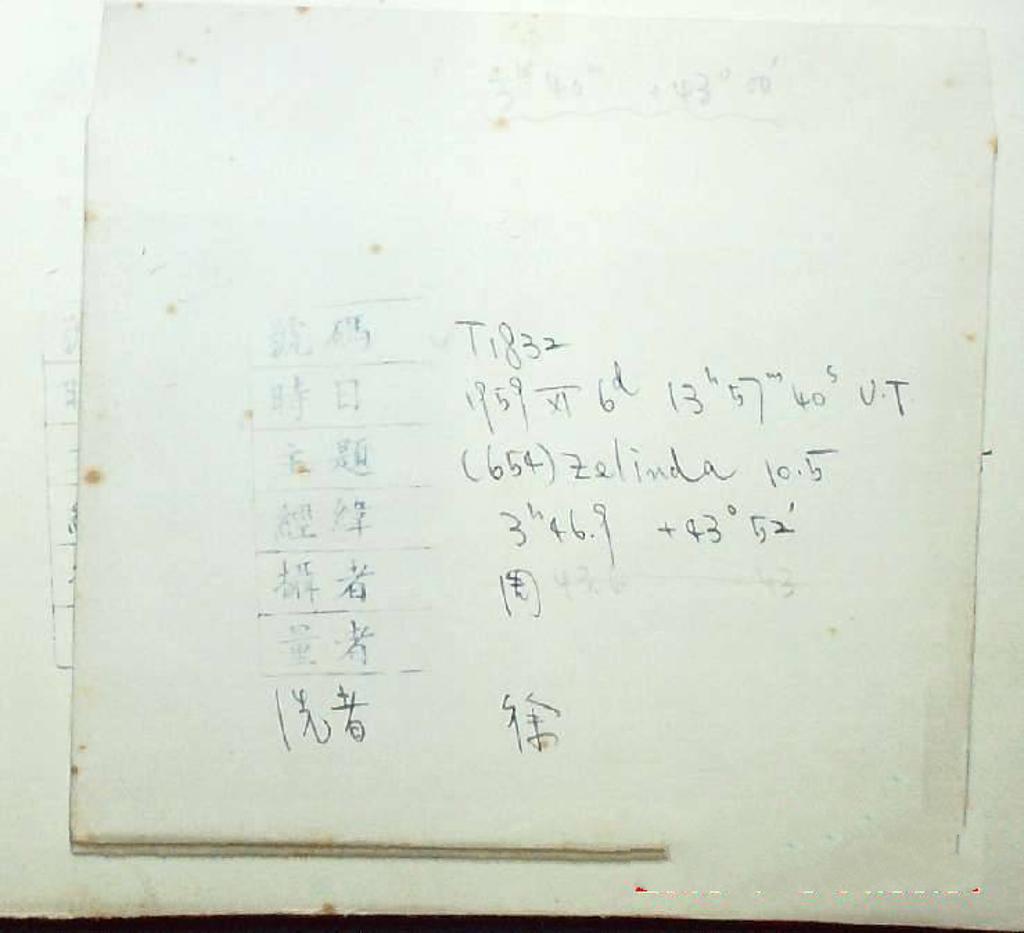 3ʰ 40ᵐ +43° 00′
號碼 T1832
時日 1959 XI 6ᵈ 13ʰ 57ᵐ 40ˢ U.T
主題 (654) Zelinda 10.5
經緯 3ʰ46.9 +43° 52′
攝者 周
量者
洗者 徐